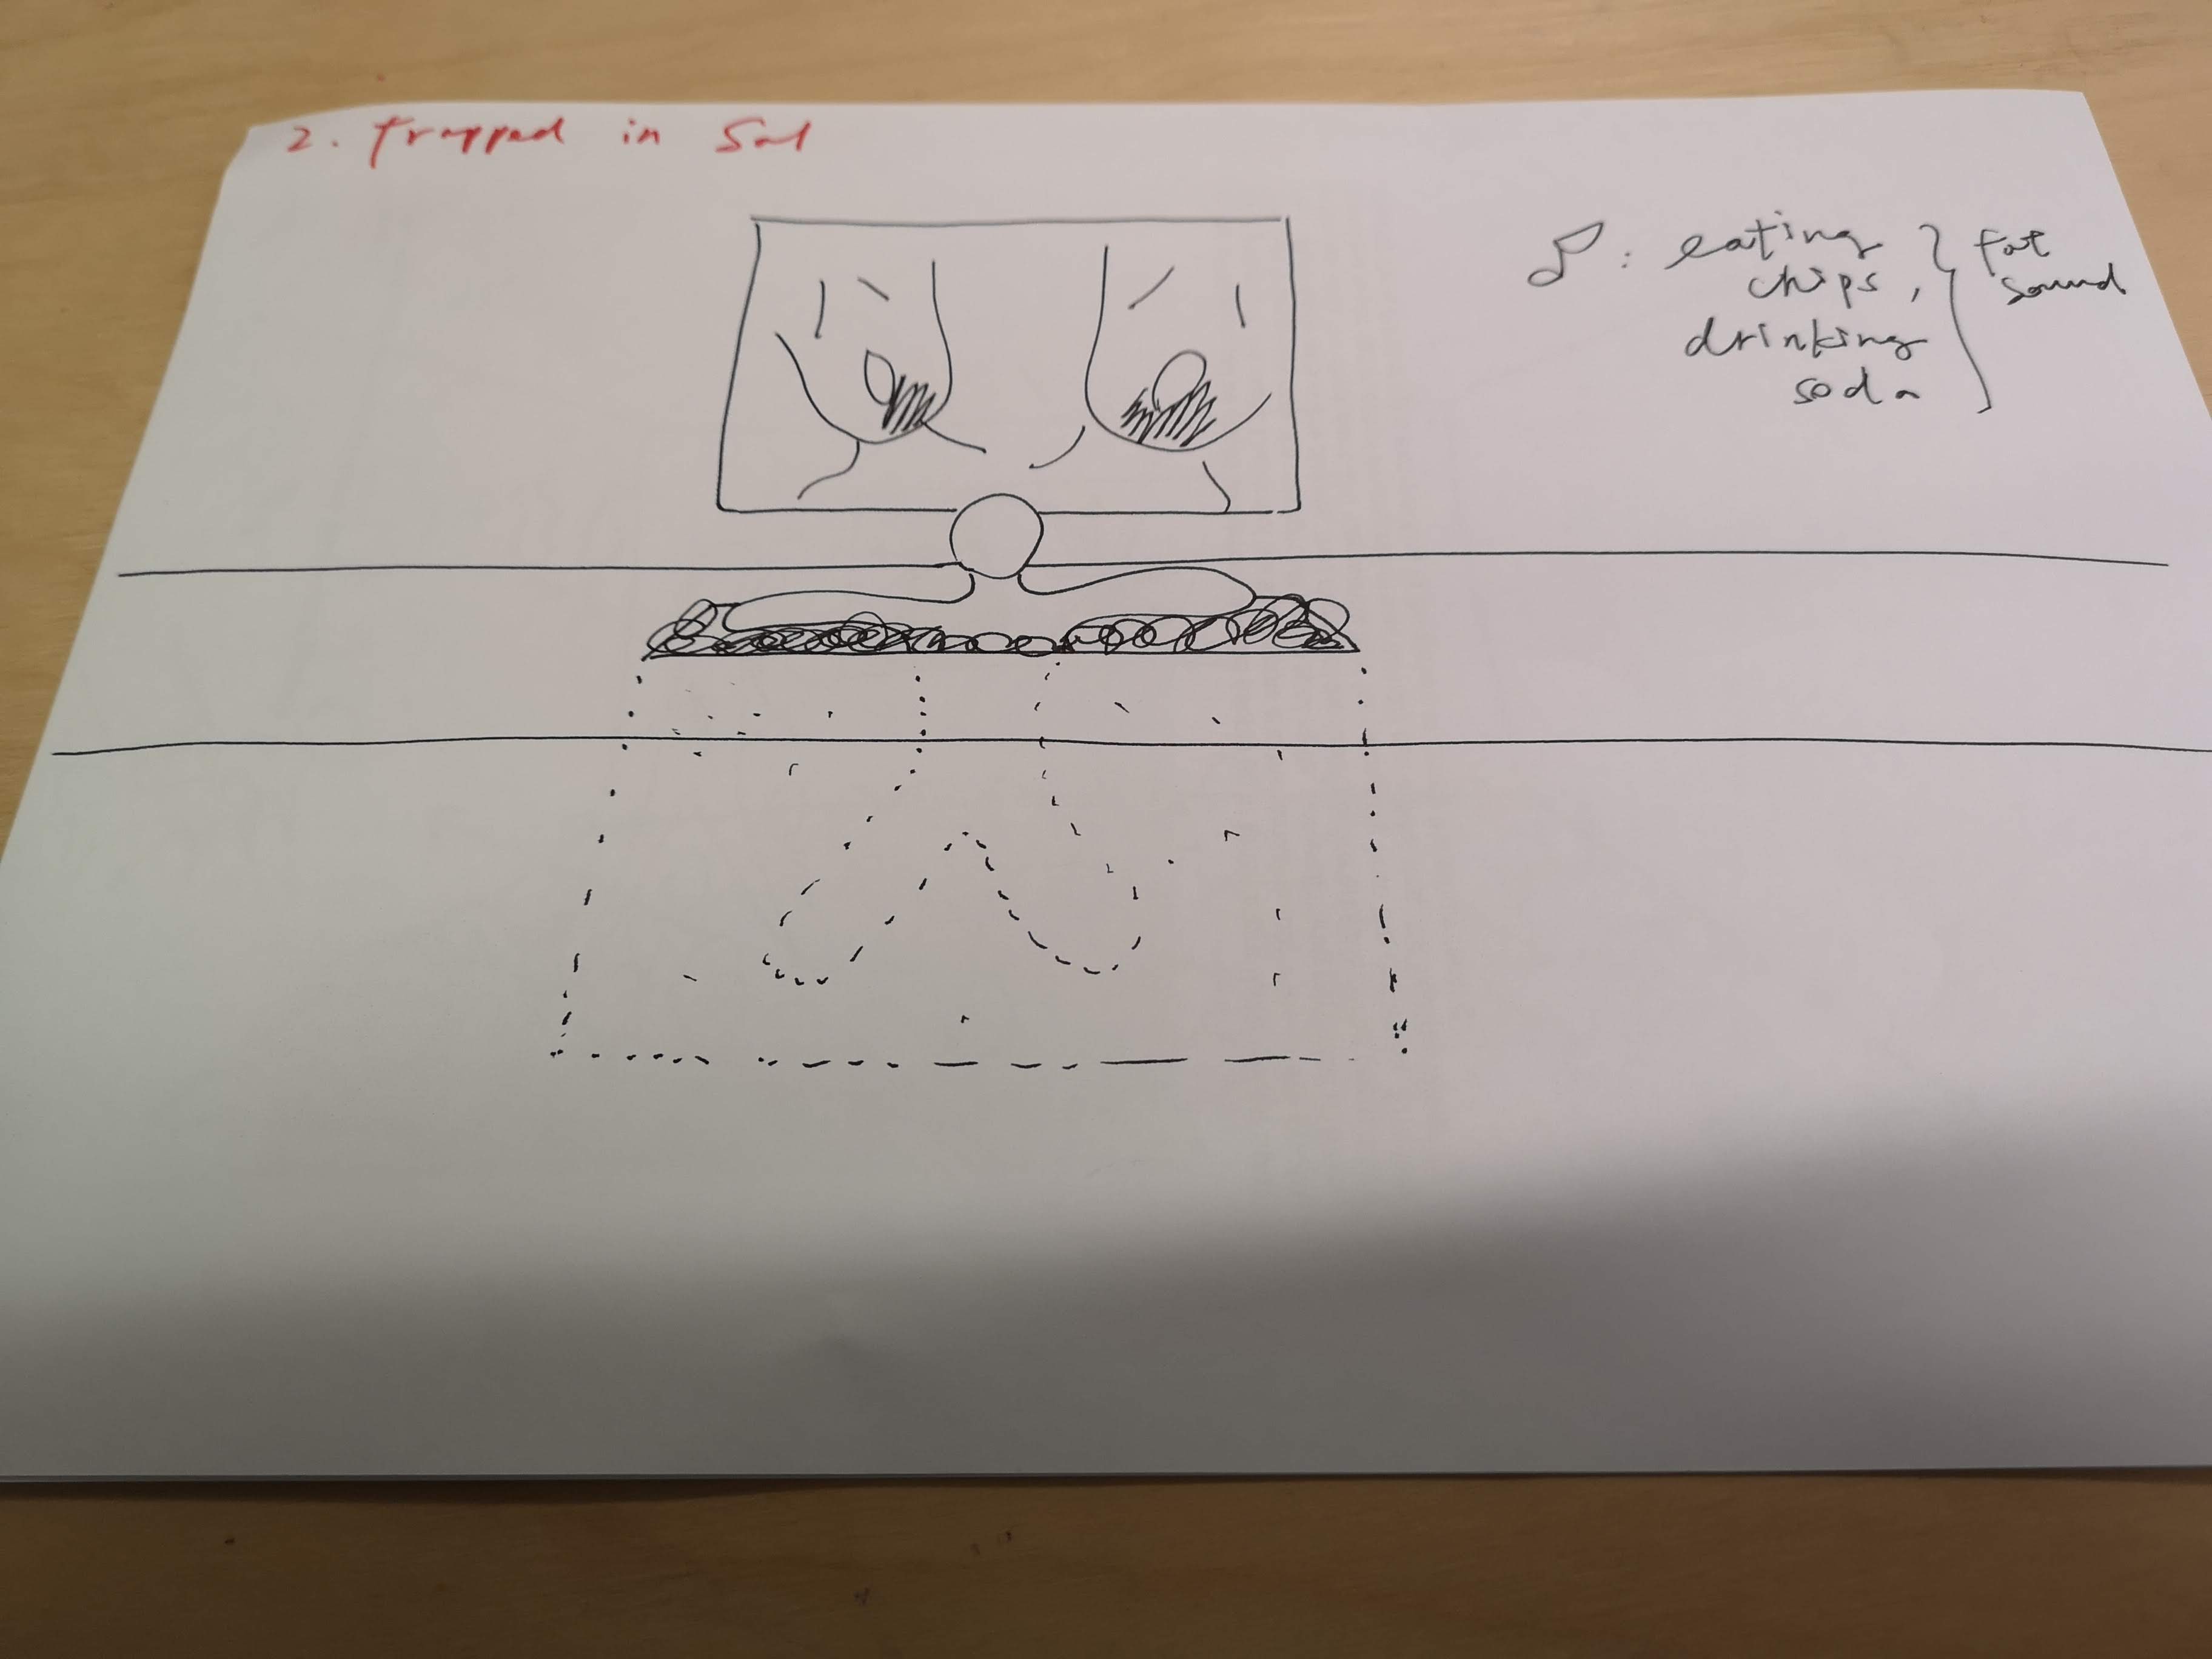 2. Trapped in
eating
chips,
drinking
soda
fat
sound